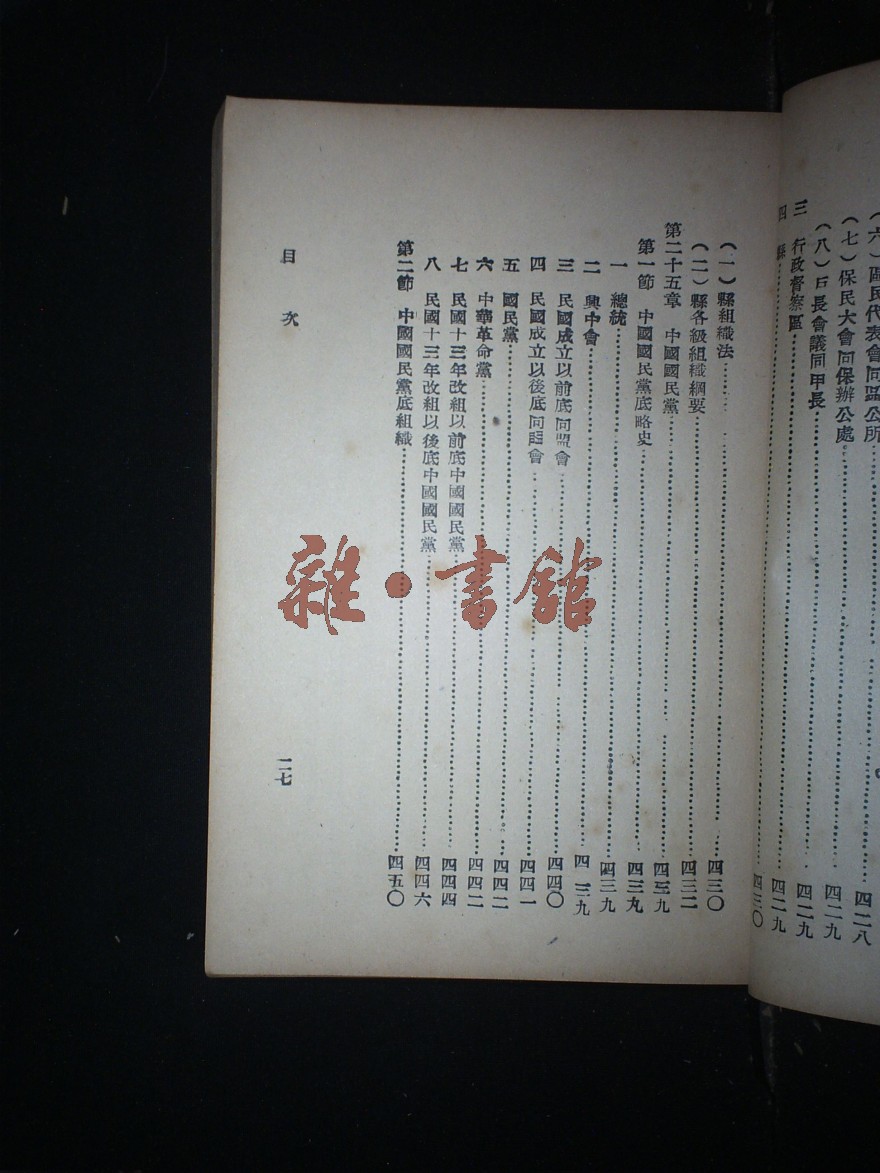 (六)區民代表會同區公所……四二八
(七)保民大會同保辦公處……四二九
(八)戶長會議同甲長……四二九
三 行政督察區……四二九
四 縣……四三〇
(一)縣組織法……四三〇
(二)縣各級組織綱要……四三二
第二十五章 中國國民黨……四三九
第一節 中國國民黨底略史……四三九
一 總統……四三九
二 興中會……四三九
三 民國成立以前底同盟會……四四〇
四 民國成立以後底同盟會……四四一
五 國民黨……四四二
六 中華革命黨……四四二
七 民國十三年改組以前底中國國民黨……四四四
八 民國十三年改組以後底中國國民黨……四四六
第二節 中國國民黨底組織……四五〇
目次
二七
雜·書館